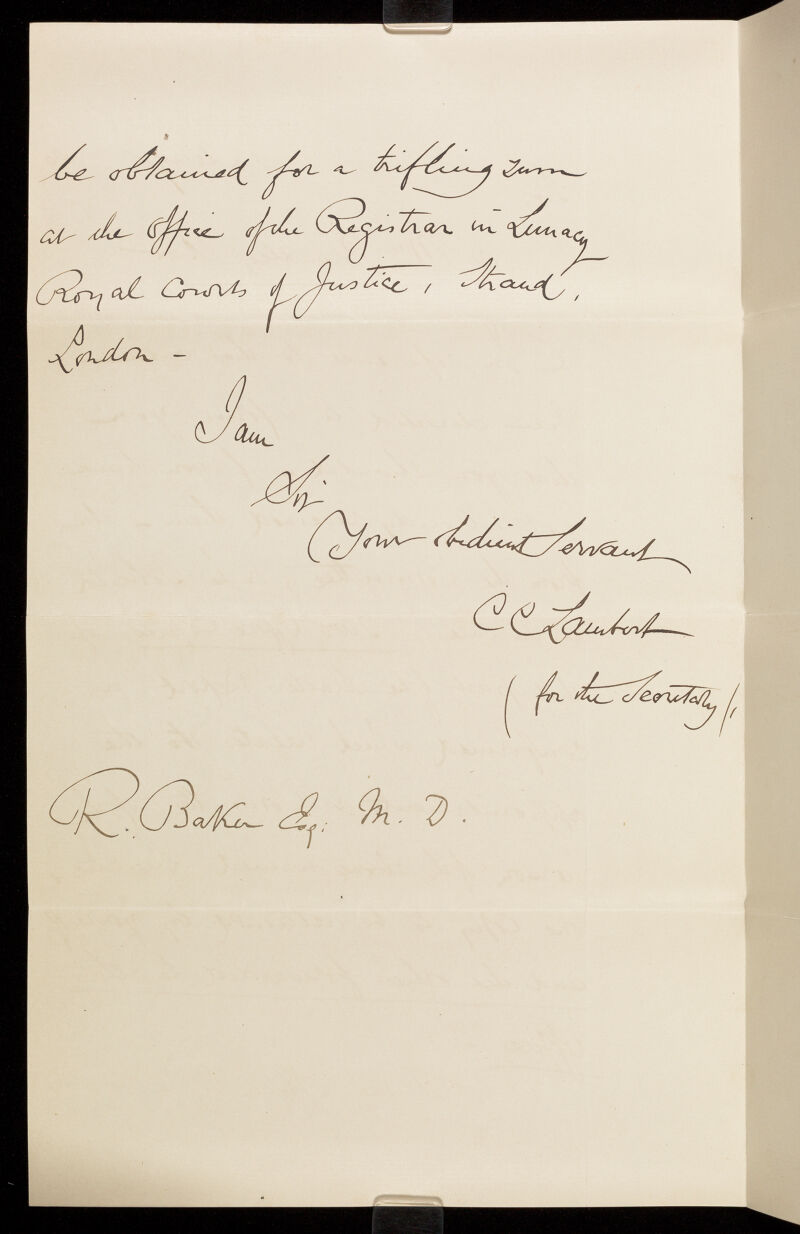 be obtained for a trifling sum
at the office of the Registrar in Lunacy
Royal Courts of Justice, Strand,
London -
I am
Sir
Your obedient Servant
C C Lambert
( for the Secretary ),
R. Baker Esq: M. D.